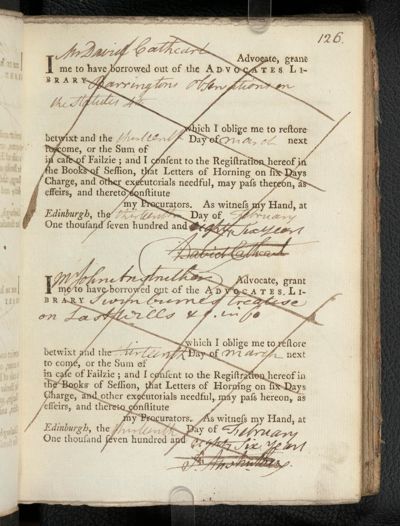 126.
Mr David Cathcart Advocate, grant
I me to have borrowed out of the ADVOCATES LI-
BRARY Barringtons Observations on
the Statutes 4to
which I oblige me to reſtore
betwixt and the thirteenth Day of March next
to come, or the Sum of
in caſe of Failzie ; and I conſent to the Regiſtration hereof in
the Books of Seſſion, that Letters of Horning on ſix Days
Charge, and other executorials needful, may paſs thereon, as
effeirs, and thereto conſtitute
my Procurators. As witneſs my Hand, at
Edinburgh, the thirteenth Day of February
One thouſand ſeven hundred and eighty Six years
David Cathcart
I Mr John Anstruther Advocate, grant
me to have borrowed out of the ADVOCATES LI-
BRARY Swinburne's treatise
on Last Wills &c. in fo
which I oblige me to reſtore
betwixt and the thirteenth Day of March next
to come, or the Sum of
in caſe of Failzie ; and I conſent to the Regiſtration hereof in
the Books of Seſſion, that Letters of Horning on ſix Days
Charge, and other executorials needful, may paſs hereon, as
effeirs, and thereto conſtitute
my Procurators. As witneſs my Hand, at
Edinburgh, the thirteenth Day of February
One thouſand ſeven hundred and eighty Six years
Jn Anstruther